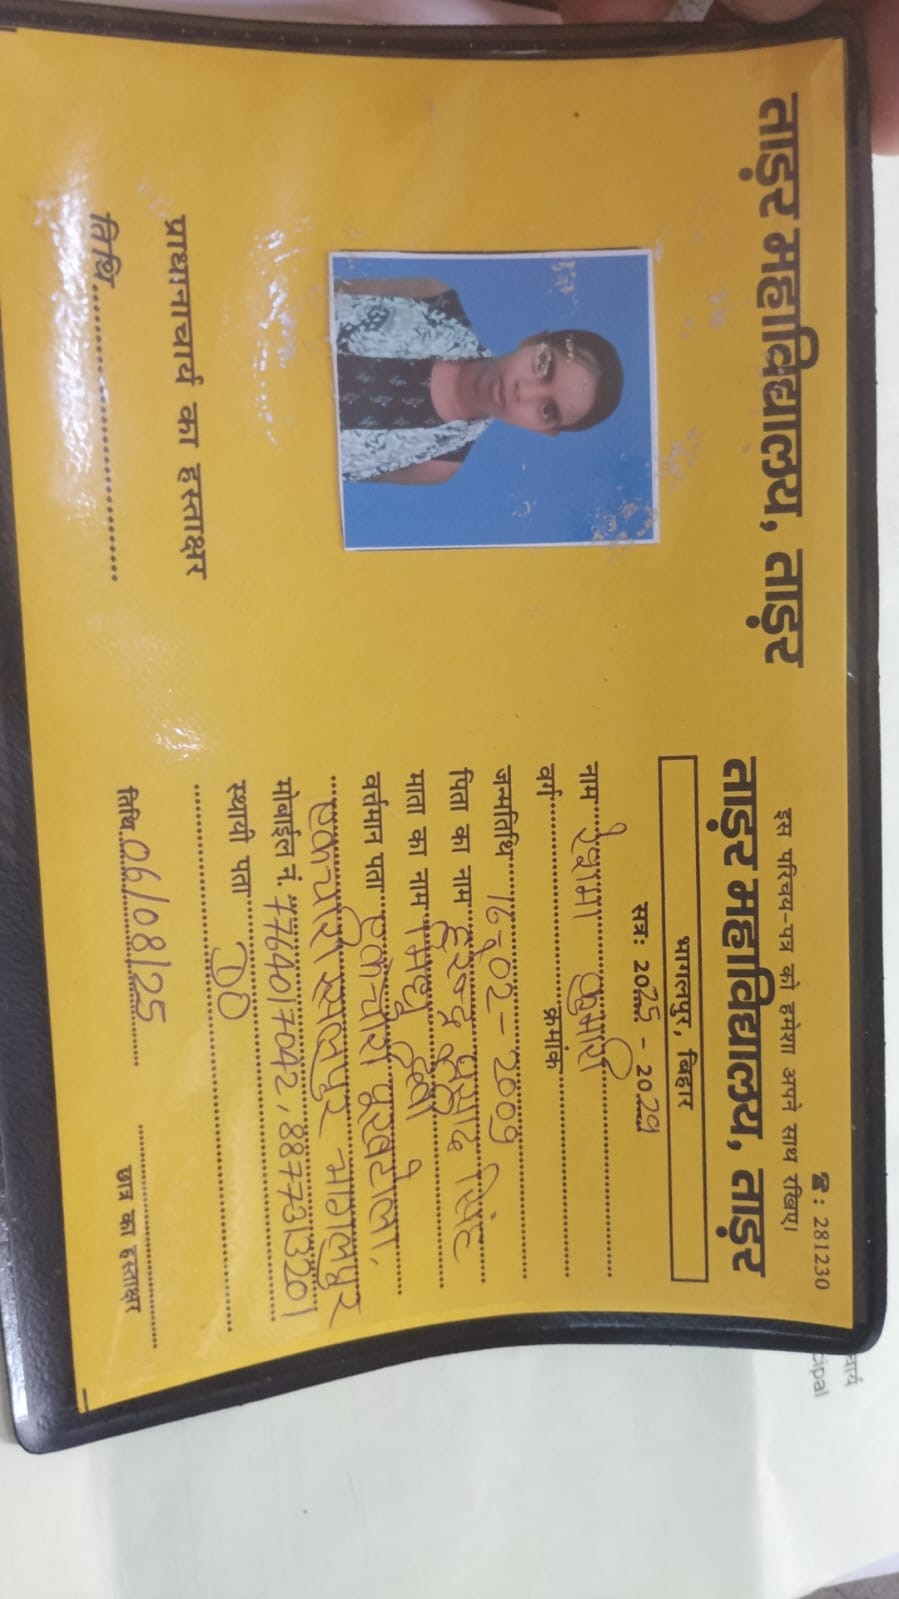 ताड़र महाविद्यालय, ताड़र
प्राधानाचार्य का हस्ताक्षर
तिथि
☎ : 281230
इस परिचय-पत्र को हमेशा अपने साथ रखिए।
ताड़र महाविद्यालय, ताड़र
भागलपुर, बिहार
सत्र: 2025 - 2029
नाम रेशमा कुमारी
वर्ग क्रमांक
जन्मतिथि 16-02-2009
पिता का नाम प्रसाद सिंह
माता का नाम देवी
वर्तमान पता एकचारी
एकचारी रसलपुर भागलपुर
मोबाईल नं. 7764017042, 8873113201
स्थायी पता DO
तिथि 06/08/25
छात्र का हस्ताक्षर
cipal